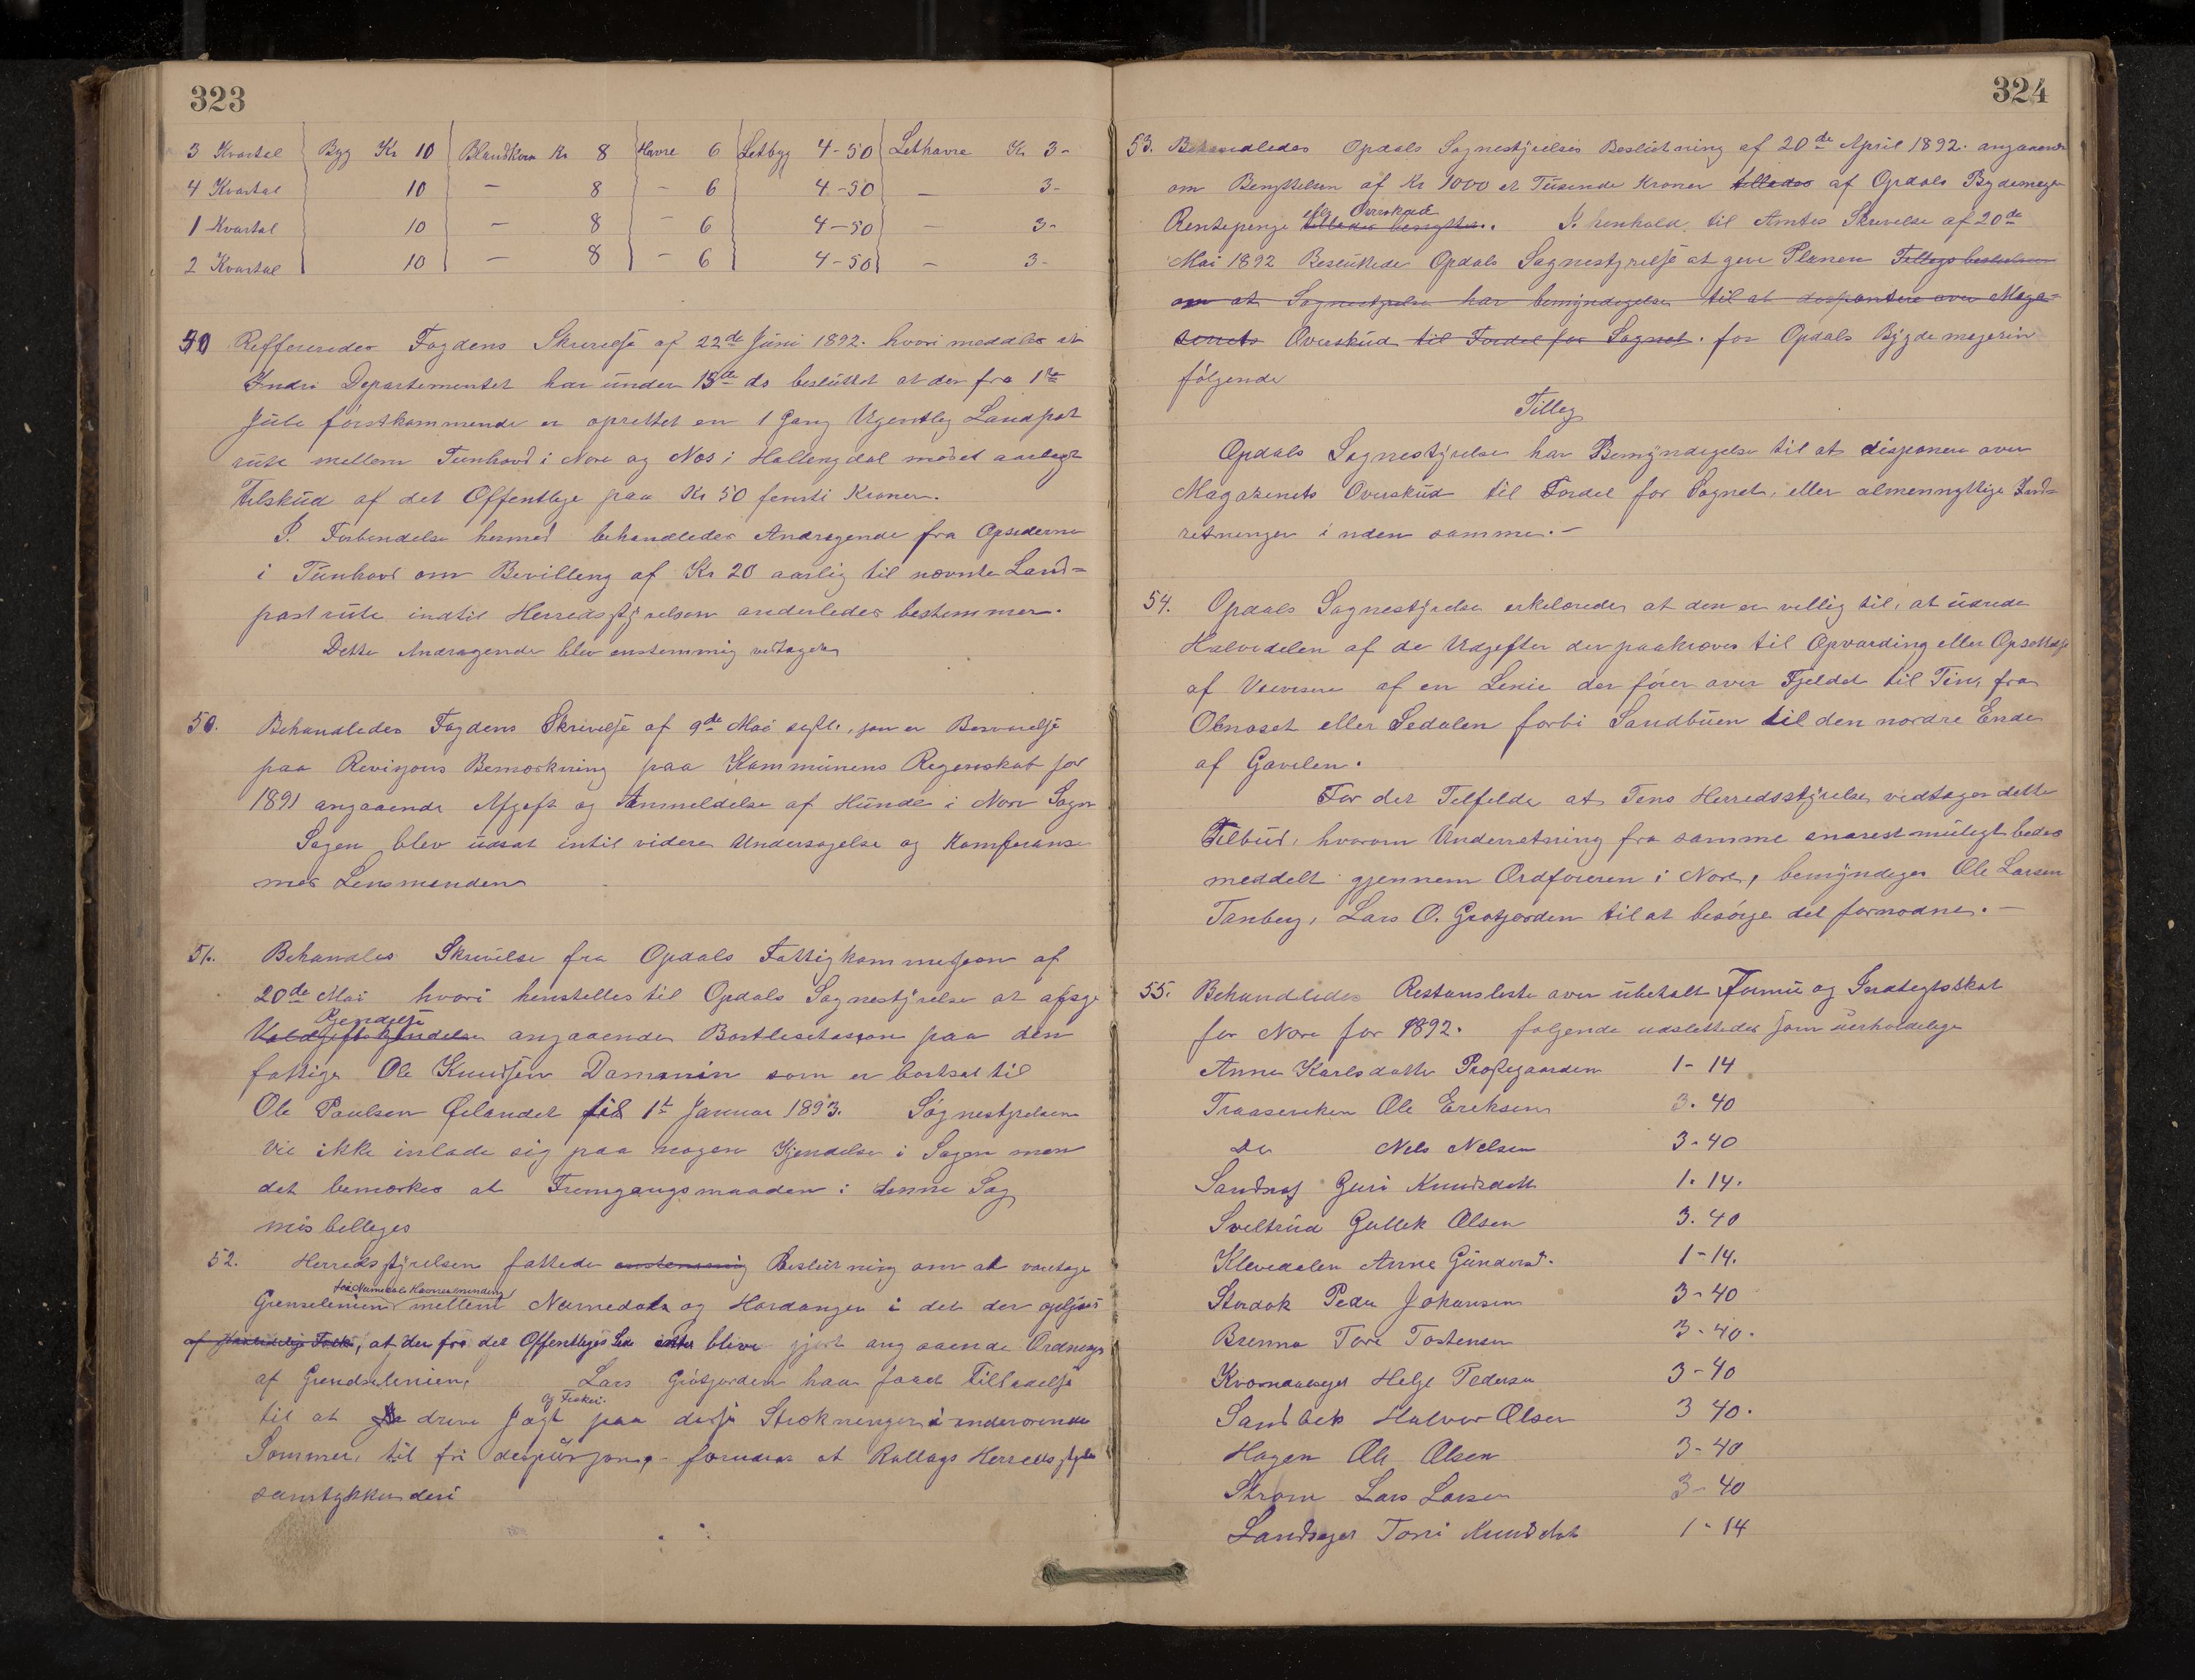 323
3 Kvartal Byg Kr 10 Blandkorn Kr 8 Havre 6 Letbyg 4-50 Lethavre Kr 3-
4 Kvartal 10 — 8 — 6 4-50 — 3-
1 Kvartal 10 — 8 — 6 4-50 — 3-
2 Kvartal 10 — 8 — 6 4-50 — 3-
Reffereredes Fogdens Skrivelse af 22de Juni 1892. hvori meddeles at
Indre Departementet har under 15de ds besluttet at der fra 1ste
Juli førstkommende er oprettet en 1 Gang Ugentlig Landpost
rute mellem Tunhovd i Nore og Næs i Hallengdal med et aarligt
Tilskud af det Offentlige paa Kr 50 femti Kroner.
I Forbendelse hermed behandledes Andragende fra Opsederne
i Tunhovd om Bevilleng af Kr 20 aarlig til nævnte Land=
postrute indtil Herredsstyrelsen anderledes bestemmer.
Dette Andragende blev enstemmig vedtaget
50. Behandledes Fogdens Skrivelse af 9de Mai sidstl., som er Besvarelse
paa Revisjons Bemærkning paa Kommunens Regenskab for
1891 angaaende Afgift og Anmeldelse af Hunde i Nore Sogn
Sagen blev udsat intil videre Undersøgelse og Konferanse
med Lensmanden
51. Behandles Skrivelse fra Opdals Fattigkommission af
20de Mai hvori henstilles til Opdals Sognestyrelse at afsige
Kjendelse
angaaende Bortlisetasjon paa den
fattige Ole Knudsen Damanin som er bortsat til
Ole Paulsen Øilandet til 1st Januar 1893. Sognestyrelsen
vil ikke inlade sig paa nogen Kjendelse i Sagen men
det bemærkes at Fremgangsmaaden i denne Sag
misbelleges
52. Herredsstyrelsen fattede enstemmig Beslutning om at varetage
Grenselenien mellem Numedal og Hardanger i det der
at der fra det Offentliges Side bliver gjort angaaende Ordnings
af Grendselenien. Lars Grøtjorden har faaet Tilladelse
og Fiskeri.
til at drive Jagt paa disse Strækninger i inderværende
Sommer, til fri disposisjon, forudsat at Rollags Herredsstyrelse
samtykker deri
324
53. Behandledes Opdals Sognestyrelses Beslutning af 20de April 1892. angaaende
om Benyttelsen af Kr 1000 et Tusende Kroner tillades af Opdals Bygdemagasin
eller Overskud
Rentepenge tillades benyttet. I henhold til Amtes Skrivelse af 20de
Mai 1892 Besluttede Opdals Sognestyrelse at geve Planen Tillægsbestemmelse
om at Sognestyrelse har bemyndigelse til at disponere over Maga=
senets Overskud til Fordel for Sognet. for Opdals Bygdemagasin
følgende
Tillæg
Opdals Sognestyrelse har Bemyndigelse til at disponere over
Magazenets Overskud til Fordel for Sognet, eller almennyttige Ind=
retninger inden samme.—
54. Opdals Sognestyrelse erkelærede at den er villig til, at udrede
Halvedelen af de Udgifter der paakræves til Opvarding eller Opsættelse
af Veivisere af en Lenie der fører over Fjeldet til Tins fra
Olnaset eller Sedalen forbi Sandbuen til den nordre Ende
af Gavelen.
For det Telfelde at Tens Herredsstyrelse vedtager dette
Telbud, hvorom Underretning fra samme snarest muligt bedes
meddelt gjennem Ordføreren i Nore, bemyndiges Ole Larsen
Tanberg, Lars O. Grøtjorden til at besørge det fornødne.—
55. Behandledes Restansliste over ubetalt Formu og Indtegtsskat
for Nore for 1892. følgende udslettedes som uerholdelige
Anne Karlsdatter Prestegaarden 1-14
Traaseneiken Ole Eriksen 3.40
Do Nels Nelsen 3-40
Sandnes Guri Knudsdatt 1.14.
Sveltrud Gullek Olsen 3.40
Klevedalen Anne Gundersd. 1-14.
Stordok Peder Johansen 3-40
Brenna Tore Tostensen 3-40.
Helge Pedersen 3-40
Sandbek Halvor Olsen 3 40.
Hagen Ole Olsen 3-40
Strøm Lars Larsen 3-40
Landsager Torri Knudsdat 1-14